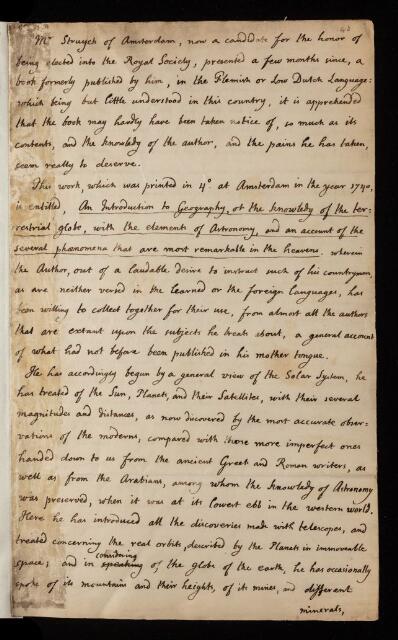 Mr Struyck of Amsterdam, now a candidate for the honor of
being elected into the Royal Society, presented a few months since, a
book formerly published by him, in the Flemish or Low Dutch Language:
which being but little understood in this country, it is apprehended
that the book may hardly have been taken notice of, so much as its
contents, and the knowledg of the author, and the pains he has taken,
seem really to deserve.
This work, which was printed in 4o at Amsterdam in the year 1740,
is entitled, An Introduction to Geography, or the knowledg of the ter-
restrial globe, with the elements of Astronomy, and an account of the
several phænomena that are most remarkable in the heavens. wherein
the Author, out of a laudable desire to instruct such of his countrymen,
as are neither versed in the learned or the foreign languages, has
been willing to collect together for their use, from almost all the authors
that are extant upon the subjects he treats about, a general account
of what had not before been published in his mother tongue.
He has accordingly begun by a general view of the Solar System, he
has treated of the Sun, Planets, and their Satellites, with their several
magnitudes and distances, as now discovered by the most accurate obser-
vations of the moderns, compared with those more imperfect ones
handed down to us from the ancient Greek and Roman writers, as
well as from the Arabians, among whom the knowledg of Astronomy
was preserved, when it was at its lowest ebb in the western world.
Here he has introduced all the discoveries made with telescopes, and
treated concerning the real orbits, described by the Planets in immoveable
considering
space; and in speaking of the globe of the earth, he has occasionally
spoke of its mountains and their heights, of its mines, and different
minerals,